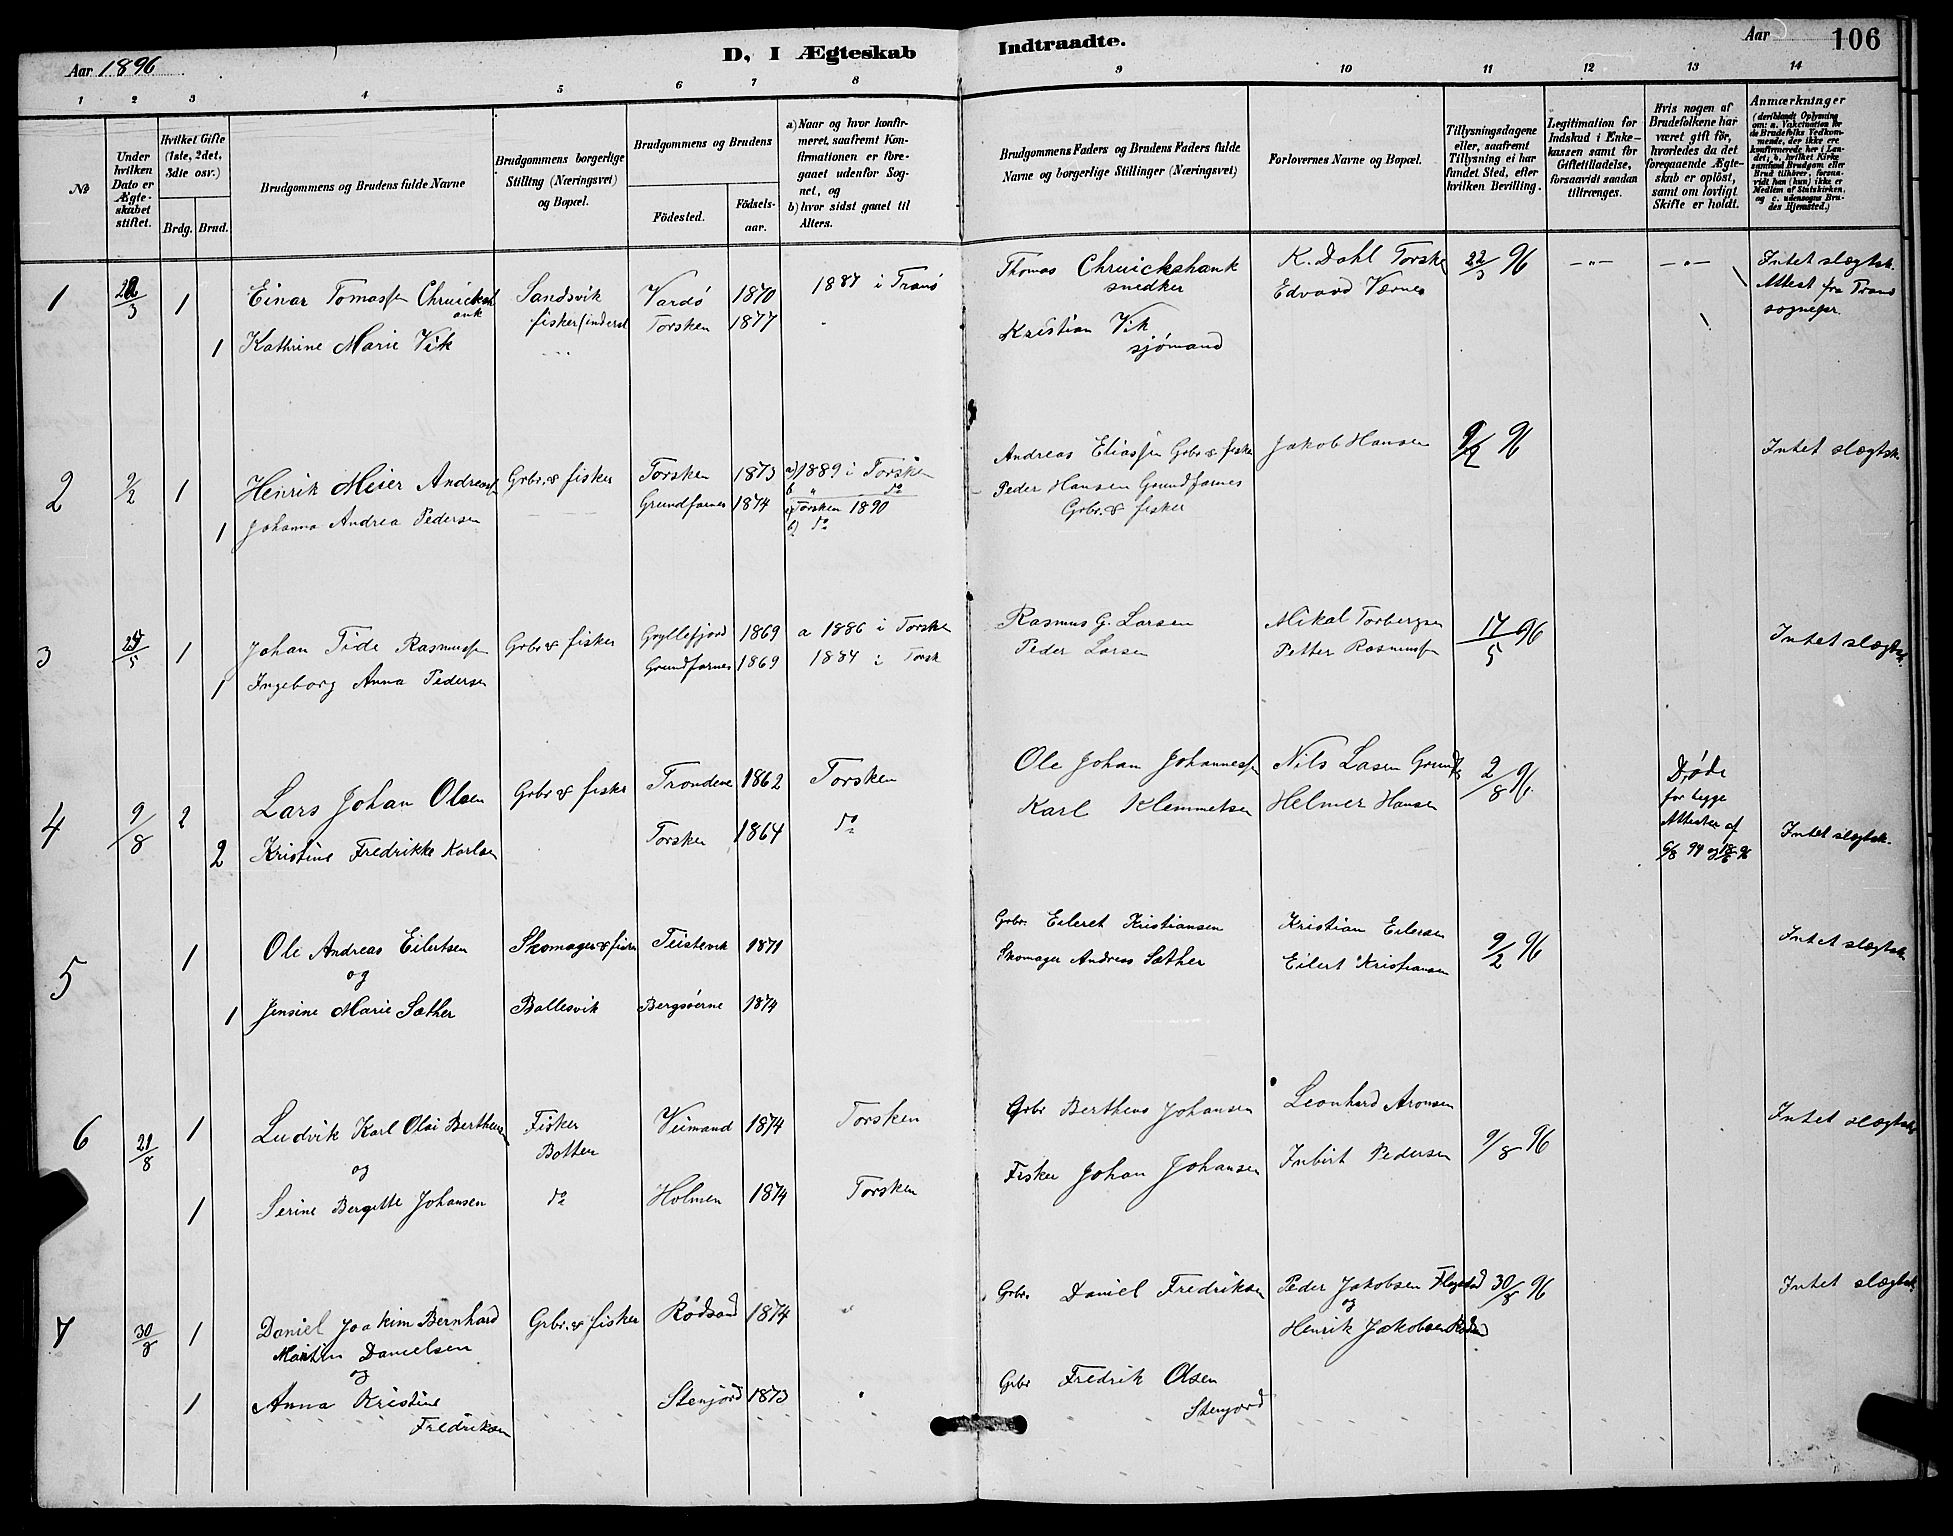 Aar 1896
D, I Ægteskab Indtraadte.
Aar
106
1 2 3 4 5 6 7 8 9 10 11 12 13 14
№
Under hvilken Dato er Ægte-skabet stiftet.
Hvilket Gifte (1ste, 2det, 3die osv.)
Brdg. Brud.
Brudgommens og Brudens fulde Navne
Brudgommens borgerlige Stilling (Næringsvei) og Bopæl.
Brudgommens og Brudens
Fødested.
Fødsels-aar.
a) Naar og hvor konfir-meret, saafremt Kon-firmationen er fore-gaaet udenfor Sog-net, og
b) hvor sidst gaaet til Alters.
Brudgommens Faders og Brudens Faders fulde Navne og borgerlige Stillinger (Næringsvei)
Forlovernes Navne og Bopæl.
Tillysningsdagene eller, saafremt Tillysning ei har fundet Sted, efter hvilken Bevilling.
Legitimation for Indskud i Enke-kassen samt for Giftetilladelse, forsaavidt saadan tiltrænges.
Hvis nogen af Brudefolkene har været gift før, hvorledes da det foregaaende Ægte-skab er opløst, samt om lovligt Skifte er holdt.
Anmærkninger
(deriblandt Oplysning om: a. Vakcination for de Brudefolks Vedkom-mende, der ikke ere konfirmerede her i Lan-det; b. hvilket Kirke-samfund Brudgom eller Brud tilhører, forsaa-vidt han (hun) ikke er Medlem af Statskirken, og c. udensogns Bru-des Hjemsted.)
1 22/3 1 Einar Tomassen Chruicksh Sandsvik Vardø 1870 1887 i Tranø Thomas Chruickshank K. Dahl Torsken 22/3 96 —„— —„— Intet slægtsk.
ank fisker (inderst Torsken 1877 „ snedker Edvard Værnes Attest fra Tranø
1 Kathrine Marie Vik Kristian Vik sognepr.
sjømand
2 9/2 1 Henrik Meier Andreassen Grbr. & fisker Torsken 1873 a) 1889 i Torsken Andreas Eliassen Grbr & fisker Jakob Hansen 9/2 96 Intet slægtsk.
b „ do
1 Johanna Andrea Pedersen Grundfarnes 1874 a) Torsken 1890 Peder Hansen Grundfarnes
b) do Grbr. & fisker
3 25/5 1 Johan Tide Rasmussen Grbr & fisker Gryllefjord 1869 a 1886 i Torsken Rasmus G. Larsen Mikal Torbergsen 17/5 96 Intet slægtsk.
1 Ingeborg Anna Pedersen Grundfarnes 1869 1884 i Torsk Peder Larsen Petter Rasmussen
4 9/8 2 Lars Johan Olsen Grbr & fisker Trondenes 1862 Torsken Ole Johan Johannessen Nils Lasen Grundf 2/8 96 Døde
for legge
2 Kristine Fredrikke Karlsen Torsken 1864 do Karl Klemmetsen Helmer Hansen Attester af Intet slægtsk.
6/8 94 og 18/6 96
5 1 Ole Andreas Eilertsen Skomager & fisker Teistevik 1871 Grbr. Eileret Kristiansen Kristian Eilersen 9/2 96 Intet slægtsk
og Skomager Andreas Sæther Eilert Kristiansen
1 Jensine Marie Sæther Ballesvik Bergsøerne 1874
6 21/8 1 Ludvik Karl Olai Bertheus Fisker Veimand 1874 Torsken Grbr Bertheus Johansen Leonhard Aronsen 9/8 96 Intet slægtsk
og Botten
1 Serine Bergitte Johansen do Holmen 1874 Torsken Fisker Johan Johansen Inbirt Pedersen
7 30/8 1 Daniel Joakim Bernhard Grbr. & fisker Rødsand 1874 „ Grbr. Daniel Fredriksen Peder Jakobsen Flagstad 30/8 96 Intet slægtsk.
Martin Danielsen og
og Henrik Jakobsen Rødsand
1 Anna Kristine Stenjord 1873 „ Grbr Fredrik Olsen
Fredriksen Stenjord